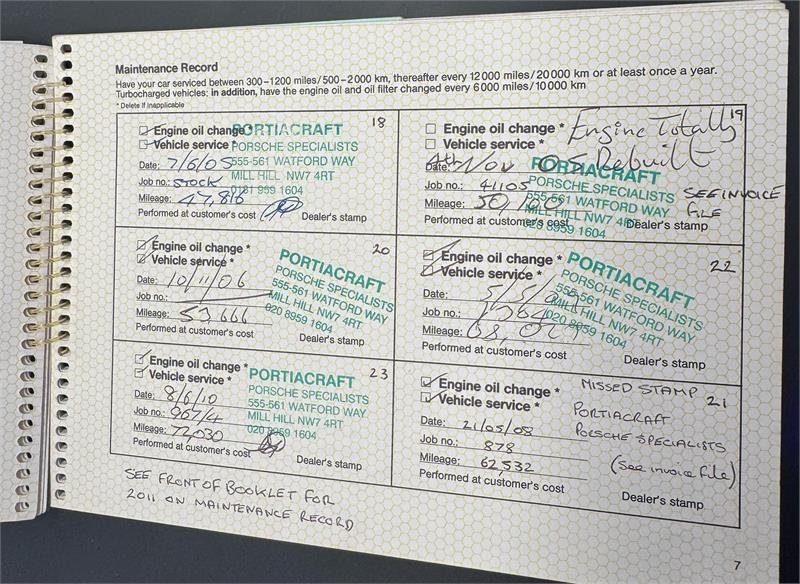 Maintenance Record
Have your car serviced between 300–1200 miles/500–2000 km, thereafter every 12000 miles/20000 km or at least once a year.
Turbocharged vehicles: in addition, have the engine oil and oil filter changed every 6000 miles/10000 km
* Delete if inapplicable
18
Engine oil change *
Vehicle service *
Date: 7/6/05
Job no.: STOCK
Mileage: 47,816
Performed at customer's cost
Dealer's stamp
PORTIACRAFT
PORSCHE SPECIALISTS
555-561 WATFORD WAY
MILL HILL NW7 4RT
0181 959 1604
19
Engine oil change *
Vehicle service *
Engine Totally
Rebuilt
Date: 4th Nov 05
Job no.: 41105
Mileage: 50,100
Performed at customer's cost
Dealer's stamp
PORTIACRAFT
PORSCHE SPECIALISTS
555-561 WATFORD WAY
MILL HILL NW7 4RT
020 8959 1604
SEE INVOICE
FILE
20
Engine oil change *
Vehicle service *
Date: 10/11/06
Job no.:
Mileage: 53666
Performed at customer's cost
Dealer's stamp
PORTIACRAFT
PORSCHE SPECIALISTS
555-561 WATFORD WAY
MILL HILL NW7 4RT
020 8959 1604
22
Engine oil change *
Vehicle service *
Date: 5/5/
Job no.:
Mileage:
Performed at customer's cost
Dealer's stamp
PORTIACRAFT
PORSCHE SPECIALISTS
555-561 WATFORD WAY
MILL HILL NW7 4RT
020 8959 1604
23
Engine oil change *
Vehicle service *
Date: 8/6/10
Job no.: 967/4
Mileage: 72,030
Performed at customer's cost
Dealer's stamp
PORTIACRAFT
PORSCHE SPECIALISTS
555-561 WATFORD WAY
MILL HILL NW7 4RT
020 8959 1604
21
Engine oil change *
Vehicle service *
Date: 21/05/08
Job no.: 878
Mileage: 62,532
Performed at customer's cost
Dealer's stamp
MISSED STAMP
PORTIACRAFT
PORSCHE SPECIALISTS
(See invoice file)
SEE FRONT OF BOOKLET FOR
2011 ON MAINTENANCE RECORD
7